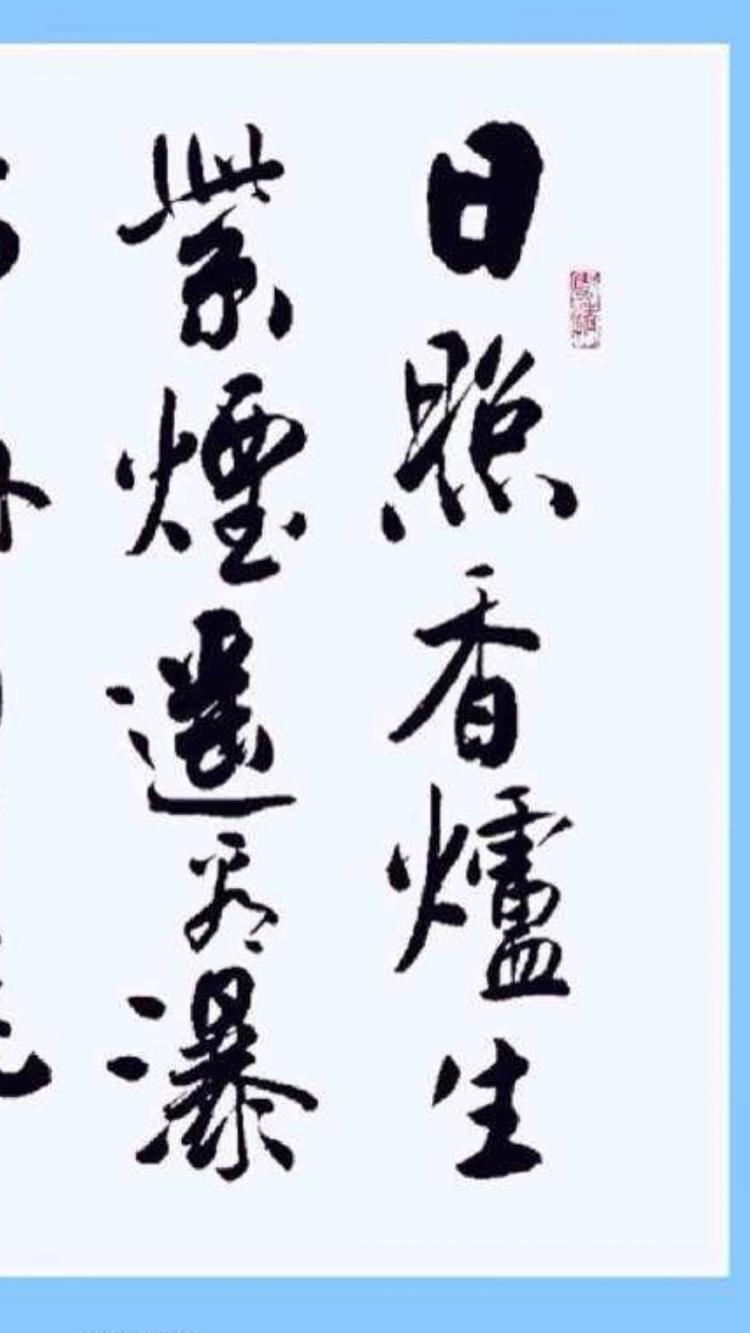 日照香爐生
紫煙遥看瀑